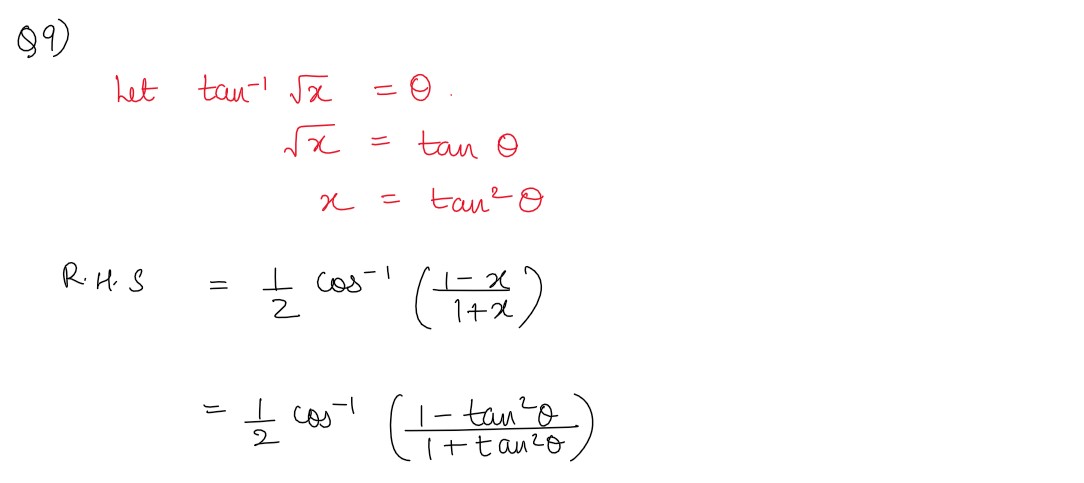 Q9)
Let tan⁻¹ √x = θ.
√x = tan θ
x = tan²θ
R.H.S = 1/2 cos⁻¹ ((1-x)/(1+x))
= 1/2 cos⁻¹ ((1 - tan²θ)/(1 + tan²θ))